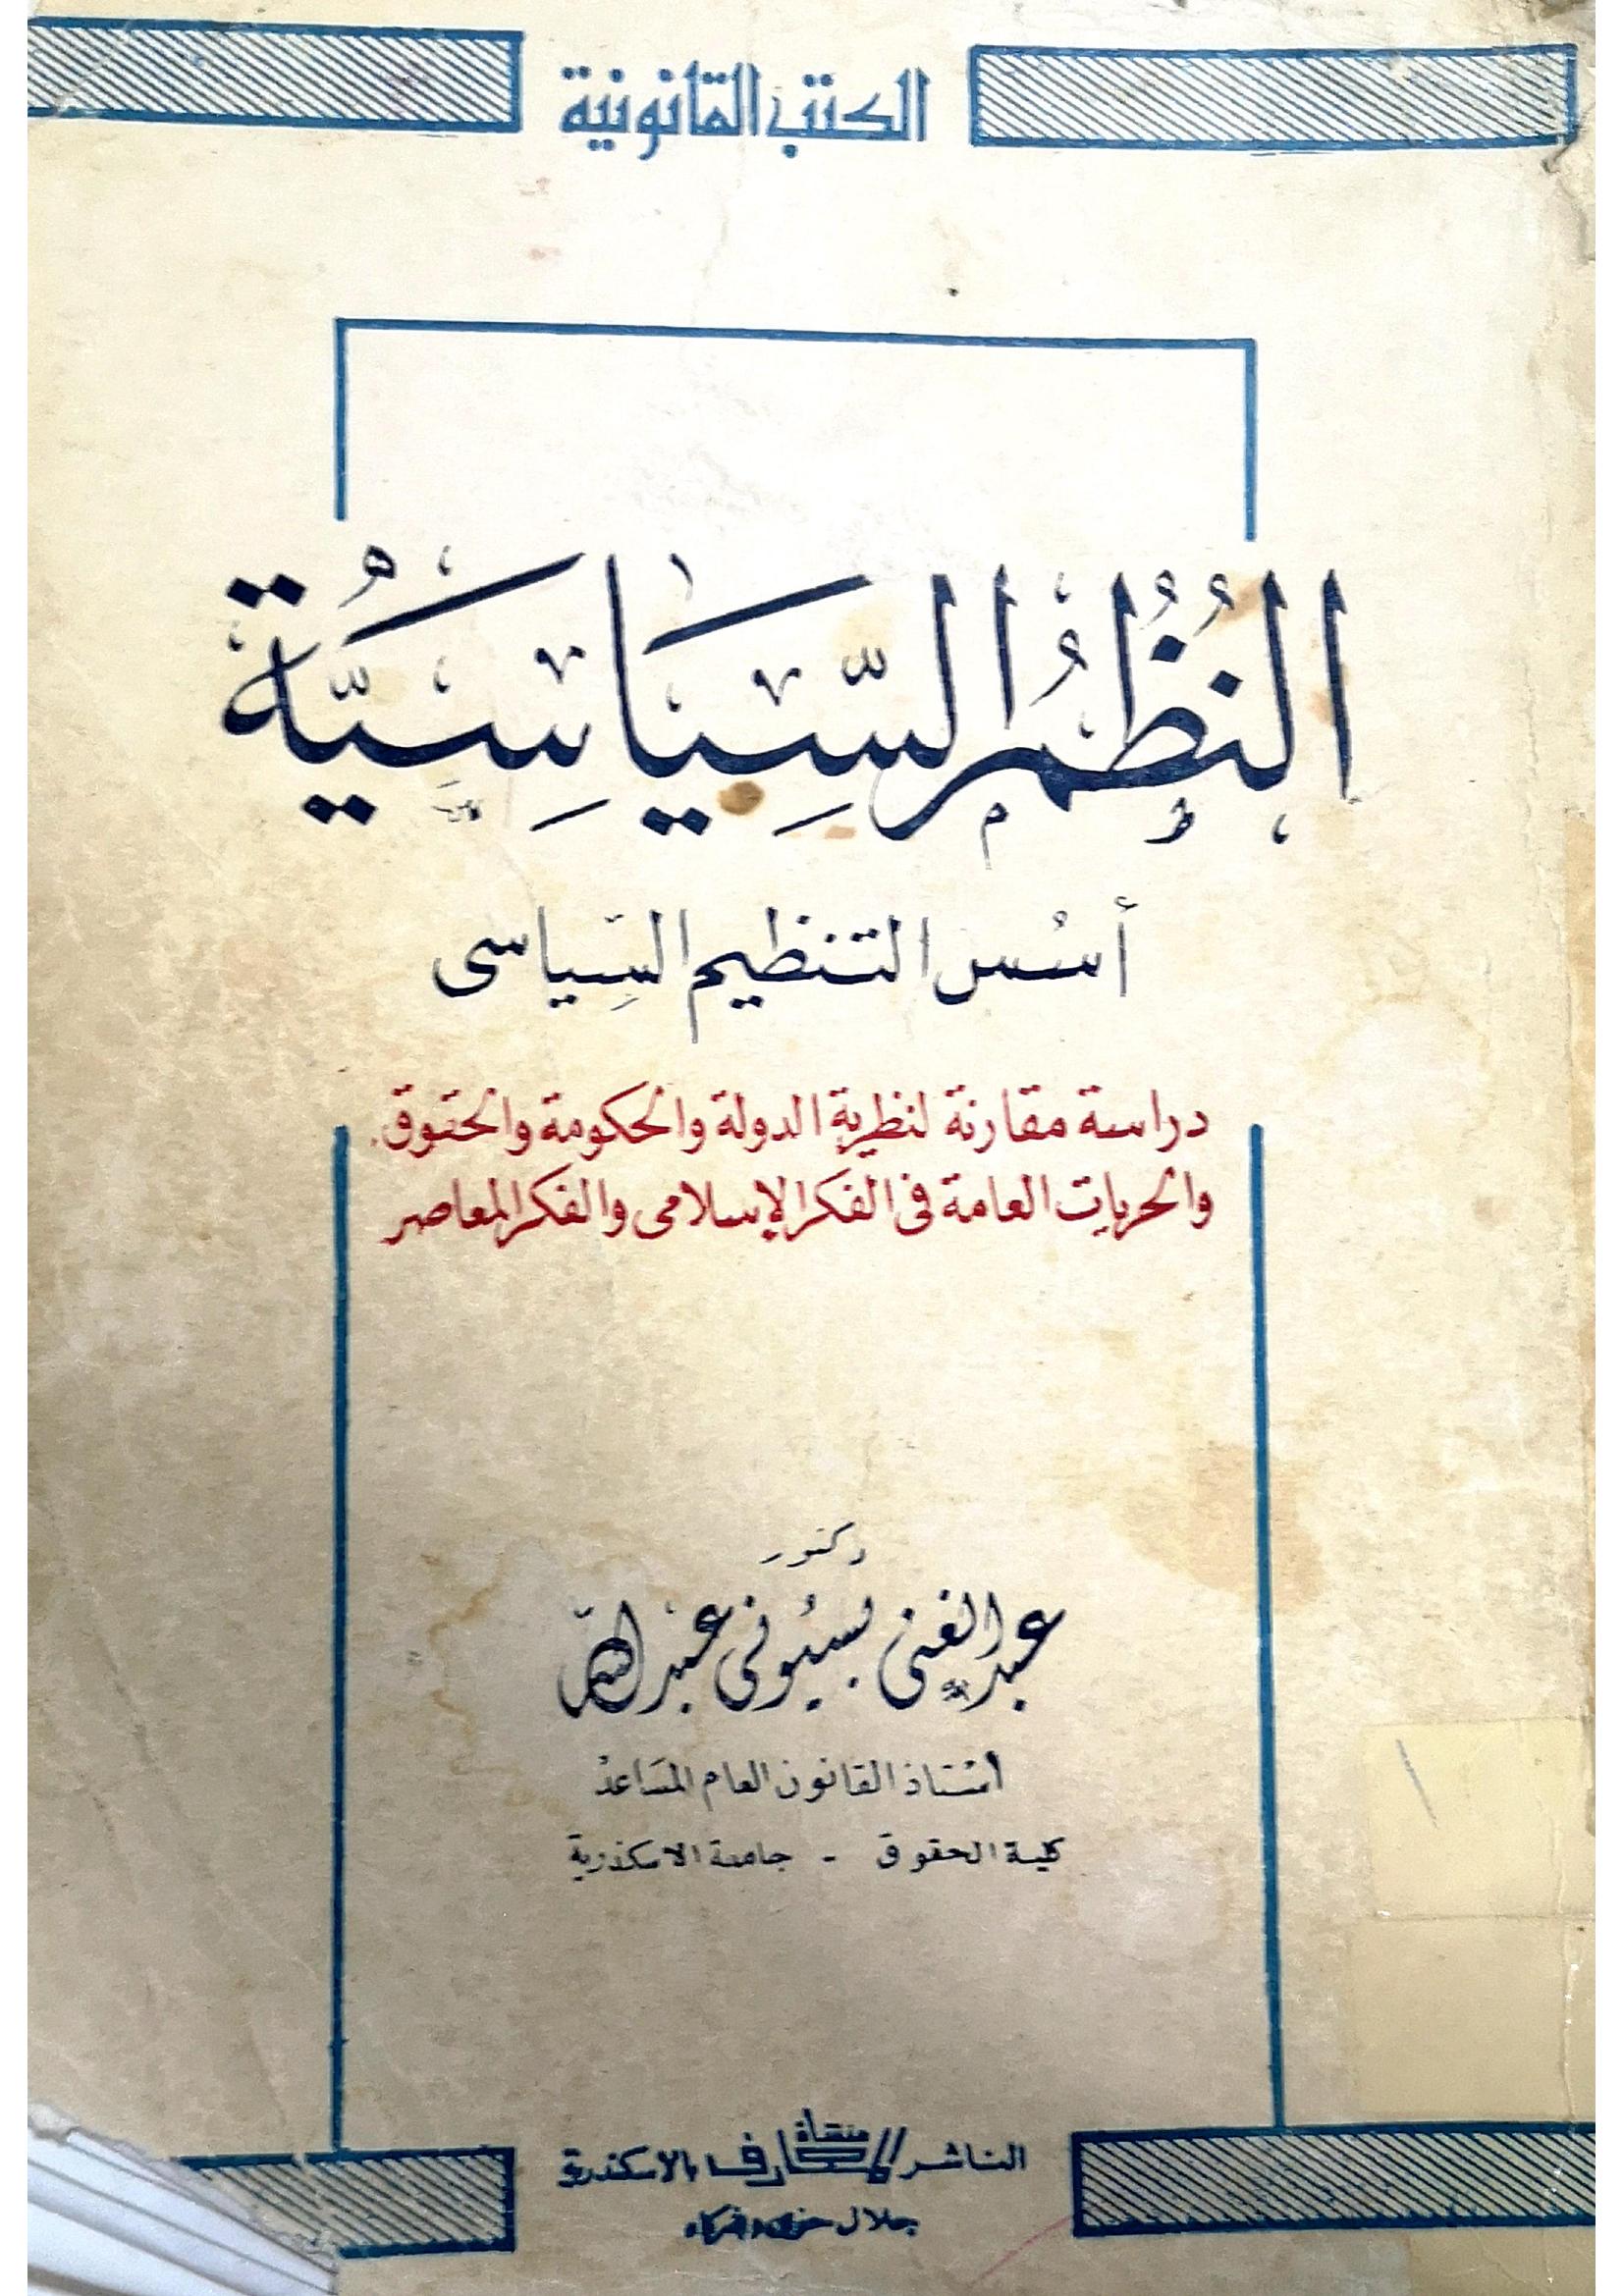 الكتب القانونية
النُظُم السِّيَاسِيَّة
أسُس التنظيم السِّياسى
دراسة مقارنة لنظرية الدولة والحكومة والحقوق
والحريات العامة فى الفكر الإسلامى والفكر المعاصر
دكتور
عبد الغنى بسيُونى عبد الله
أستاذ القانون العام المسَاعد
كلية الحقوق - جامعة الاسكندرية
الناشر منشأة المعارف بالاسكندرية
جلال حزى وشركاه